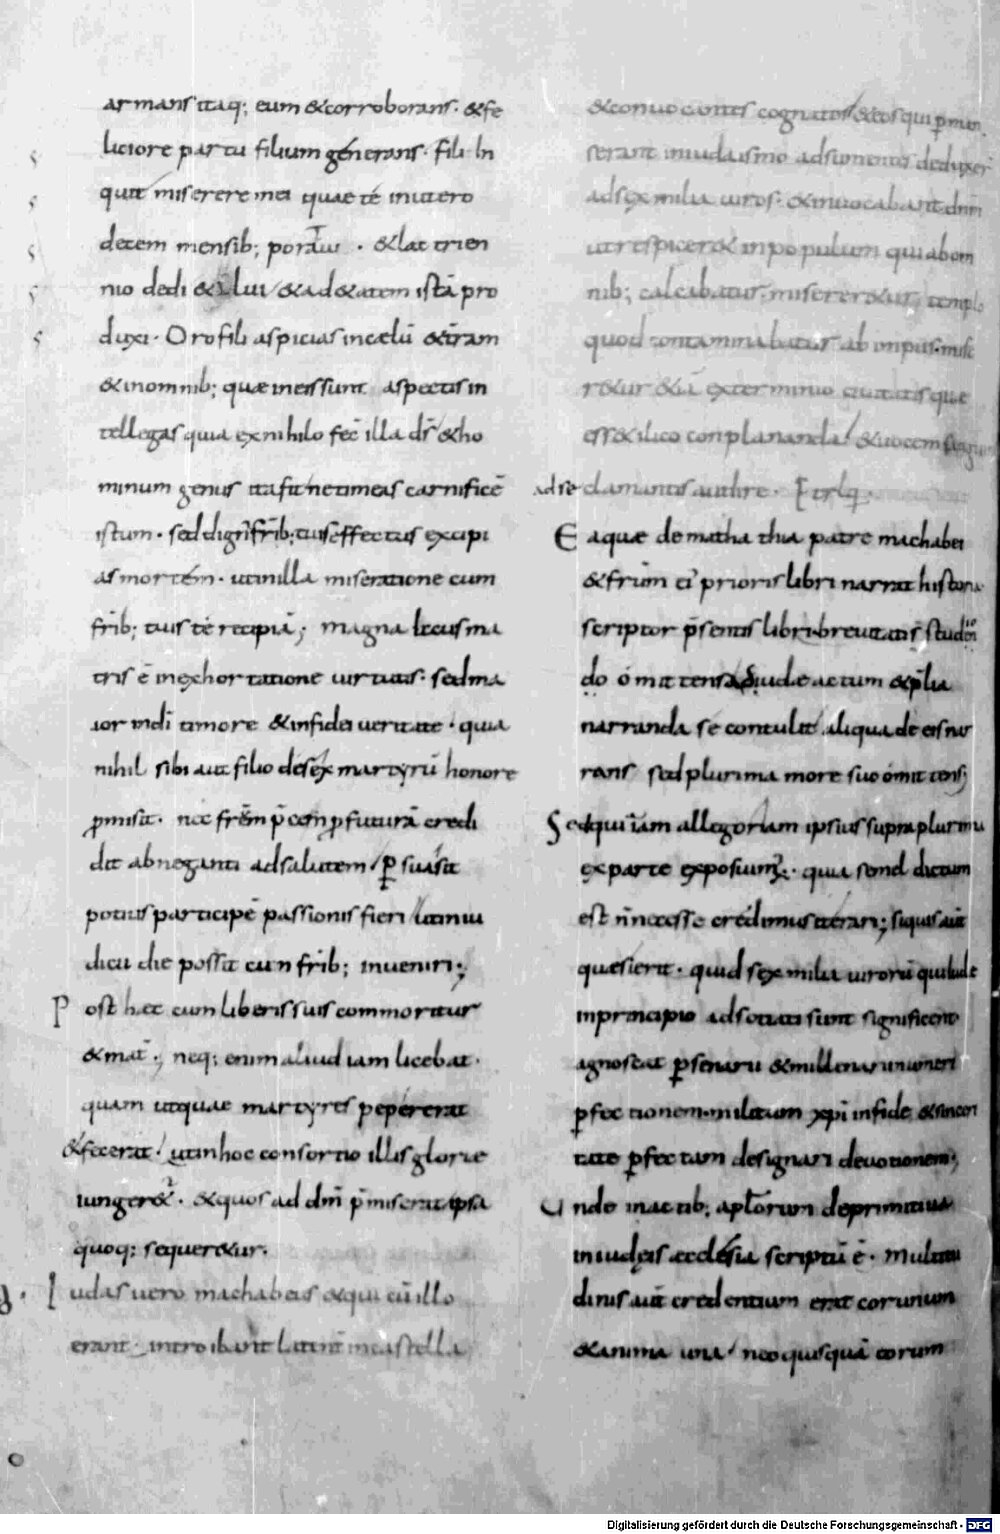 armans itaq; eum & corroborans. & fe
liciore partu filium generans. fili In
quit miserere mei quae té in utero
decem mensib; portaui. & lac trien
nio dedi & alui / & ad &atem istā pro
duxi. Oro fili aspicias in cælū & t̄ram
& in omnib; quæ in eis sunt aspectis in
tellegas quia ex nihilo fec̄ illa d̄s / & ho
minum genus ita fit / ne timeas carnificē
istum. sed dign' fr̄ib; tuis effectus excipi
as mortem. ut in illa miseratione cum
fr̄ib; tuis té recipiā; magna laus ma
tris ē in exhortatione uirtutis. sed ma
ior in dī timore & in fidei ueritate. quia
nihil sibi aut filio deesse ex martyrū honore
p̄misit. nec frēm p̄cem p̄futurā credi
dit abneganti ad salutem / p̱suasit
potius participē passionis fieri / ut in iu
dicii die possit cum fr̄ib; inueniri;
Post hæc cum liberis suis commoritur
& mat̄; neq; enim aliud iam licebat.
quam ut quae martyres pepererat
& fecerat / ut in hoc consortio illis glorie
iunger&ur. & quos ad dn̄m p̄miserat ipsa
quoq; sequer&ur.
Iudas uero machabeus & qui cū illo
erant. introibant latent̄ in castella
& conuocantes cognatos / & eos qui p̱man
serant in iudaismo adsumentes deduxer̄
ad sex milia uiros. & inuocabant dn̄m
ut respicer& in populum qui ab om
nib; calcabatur. miserer&ur templo
quod contaminabatur ab impiis. mise
rer&ur &iā exterminio ciuitatis que
ess& ilico conplananda / & uocem sanguinis
ad se clamantis audire. Et rlq̄.
Ea quæ de mathathia patre machabei
& fr̄um ei' prioris libri narrat historia
scriptor p̄sentis libri breuitatis studen
do omittens ad iudæ actum & p̄lia
narranda se contulit / aliqua de eis nar
rans sed plurima more suo omittens;
Sed qui iam allegoriam ipsius supra plurima
ex parte exposuim'. quia semel dictum
est n̄ necesse credimus iterari; si quis aut̄
quesierit. quid sex milia uirorū qui iudę
in principio adsociati sunt significent
agnoscat p̱ senarii & millenarii numeri
p̱fectionem. militum xp̄i in fide & sinceri
tate p̱fectam designari deuotionem;
Unde in actib; apl̄orum de primitiua
in iudeis æcclesia scriptū ē. multitu
dinis aut̄ credentium erat cor unum
& anima una / nec quisquā eorum
Digitalisierung gefördert durch die Deutsche Forschungsgemeinschaft - DFG